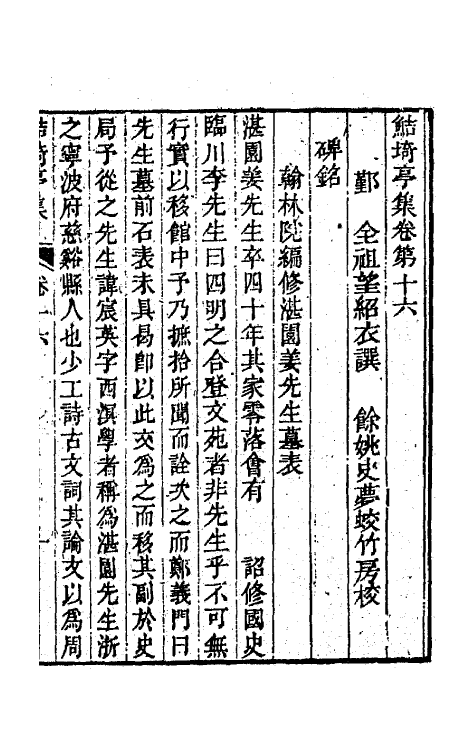 鮚埼亭集卷第十六
鄞　全祖望紹衣譔　餘姚史夢蛟竹房校
碑銘
翰林院編修湛園姜先生墓表
湛園姜先生卒四十年其家零落會有　詔修國史
臨川李先生曰四明之合登文苑者非先生乎不可無
行實以移館中予乃摭拾所聞而詮次之而鄭義門曰
先生墓前石表未具曷卽以此文爲之而移其副於史
局予從之先生諱宸英字西溟學者稱爲湛園先生浙
之寧波府慈谿縣人也少工詩古文詞其論文以爲周
鮚埼亭集　卷十六　一